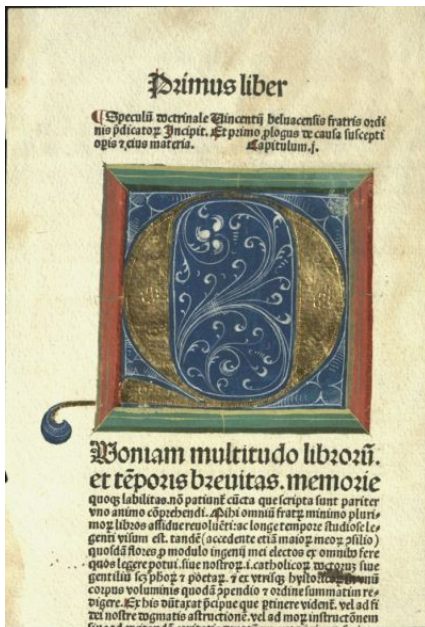 Primus liber
¶ Speculū doctrinale Uincentij beluacensis fratris ordi
nis p̄dicatoꝝ Incipit. Et primo ꝓlogus de causa suscepti
opis ⁊ eius materia. Capitulum .j.
Quoniam multitudo libroꝝ.
et tēporis breuitas. memorie
quoqꝫ labilitas. nō patiunt̄ cūcta que scripta sunt pariter
vno animo cōprehendi. Mihi omniū fratꝝ minimo pluri-
moꝝ libros assidue reuoluēti: ac longe tempore studiose le-
genti visum est. tandē (accedente etiā maioꝝ meoꝝ ꝯsilio)
quosdā flores ꝓ modulo ingenij mei electos ex omnibꝰ fere
quos legere potui. siue nostroꝝ .i. catholicoꝝ doctoꝝ siue
gentiliū scꝫ ph̄oꝝ ⁊ poetaꝝ. ⁊ ex vtrisqꝫ in vnū
corpus voluminis quodā ꝯpendio ⁊ ordine summatim re-
digere. Ex his dūtaxat p̄cipue que ꝑtinere vident̄. vel ad fi
dei nostre dogmatis astructionē. vel ad moꝝ instructōnem